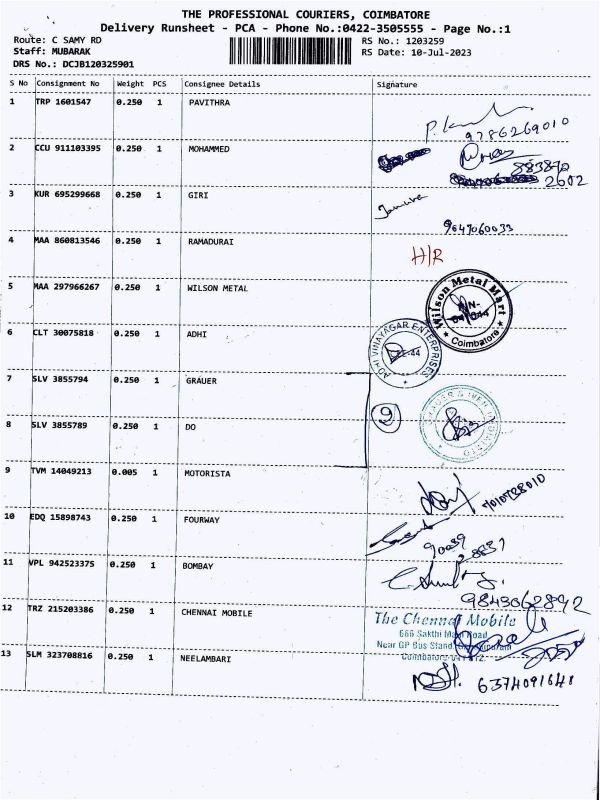 THE PROFESSIONAL COURIERS, COIMBATORE
Delivery Runsheet - PCA - Phone No.:0422-3505555 - Page No.:1
Route: C SAMY RD
Staff: MUBARAK
DRS No.: DCJB120325901
RS No.: 1203259
RS Date: 10-Jul-2023
S No Consignment No Weight PCS Consignee Details Signature
1 TRP 1601547 0.250 1 PAVITHRA
9786269010
2 CCU 911103395 0.250 1 MOHAMMED
883870
2602
3 KUR 695299668 0.250 1 GIRI
9047060033
4 MAA 860813546 0.250 1 RAMADURAI H/R
5 MAA 297966267 0.250 1 WILSON METAL
Wilson Metal Mart
Coimbatore
6 CLT 30075818 1 0.250 1 ADHI
ADHI VINAYAGAR ENTERPRISES
7 SLV 3855794 0.250 1 GRAUER
9
8 SLV 3855789 0.250 1 DO
9 TVM 14049213 0.005 1 MOTORISTA
7010738010
10 EDQ 15898743 0.250 1 FOURWAY
90039
11 VPL 942523375 0.250 1 BOMBAY
9843062892
12 TRZ 215203386 0.250 1 CHENNAI MOBILE
The Chennai Mobile
666 Sakthi Main Road
Near GP Bus Stand,
13 SLM 323708816 0.250 1 NEELAMBARI
6374091641